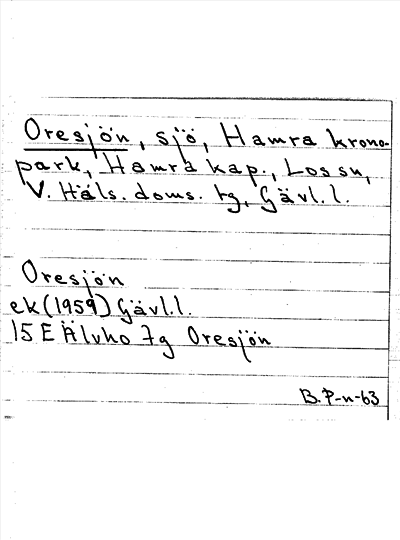 Oresjön, sjö, Hamra krono-
park, Hamra kap., Los sn,
V. Häls. doms. tg, Gävl.l.
Oresjön
ek (1959) Gävl.l.
15 E Älvho 7g Oresjön
B. P-n-63